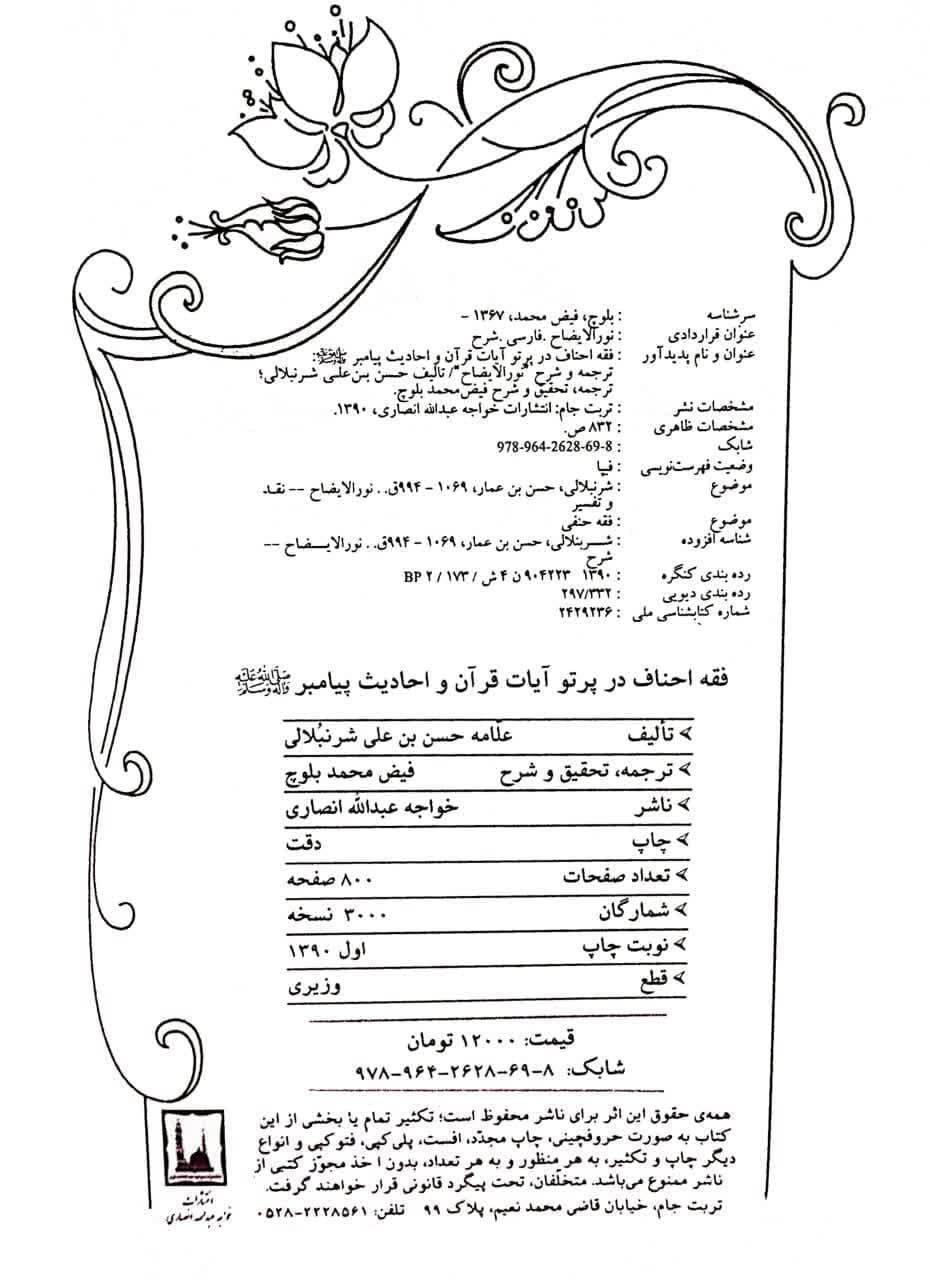 سرشناسه : بلوچ، فیض محمد، ۱۳۶۷ -
عنوان قراردادی : نورالایضاح .فارسی .شرح
عنوان و نام پدیدآور : فقه احناف در پرتو آیات قرآن و احادیث پیامبر ﷺ:
ترجمه و شرح "نورالایضاح"/ تالیف حسن بن‌علی شرنبلالی؛
ترجمه، تحقیق و شرح فیض‌محمد بلوچ.
مشخصات نشر : تربت جام: انتشارات خواجه عبدالله انصاری، ۱۳۹۰.
مشخصات ظاهری : ۸۳۲ ص.
شابک : 978-964-2628-69-8
وضعیت فهرست‌نویسی : فیپا
موضوع : شرنبلالی، حسن بن عمار، ۱۰۶۹ - ۹۹۴ق. . نورالایضاح -- نقد
و تفسیر
موضوع : فقه حنفی
شناسه افزوده : شرنبلالی، حسن بن عمار، ۱۰۶۹ - ۹۹۴ق. . نورالایضاح --
شرح
رده بندی کنگره : ۱۳۹۰ ۹۰۴۲۲۳ ن ۴ ش / ۱۷۳ / ۲ BP
رده بندی دیویی : ۲۹۷/۳۳۲
شماره کتابشناسی ملی : ۲۴۲۹۲۳۶
فقه احناف در پرتو آیات قرآن و احادیث پیامبر ﷺ
تألیف علّامه حسن بن علی شرنبُلالی
ترجمه، تحقیق و شرح فیض محمد بلوچ
ناشر خواجه عبدالله انصاری
چاپ دقت
تعداد صفحات ۸۰۰ صفحه
شمارگان ۳۰۰۰ نسخه
نوبت چاپ اول ۱۳۹۰
قطع وزیری
قیمت: ۱۲۰۰۰ تومان
شابک: ۸-۶۹-۲۶۲۸-۹۶۴-۹۷۸
همه‌ی حقوق این اثر برای ناشر محفوظ است؛ تکثیر تمام یا بخشی از این
کتاب به صورت حروفچینی، چاپ مجدّد، افست، پلی‌کپی، فتوکپی و انواع
دیگر چاپ و تکثیر، به هر منظور و به هر تعداد، بدون اخذ مجوّز کتبی از
ناشر ممنوع می‌باشد. متخلّفان، تحت پیگرد قانونی قرار خواهند گرفت.
تربت جام، خیابان قاضی محمد نعیم، پلاک ۹۹ تلفن: ۲۲۲۸۵۶۱-۰۵۲۸
انتشارات
خواجه عبدالله انصاری